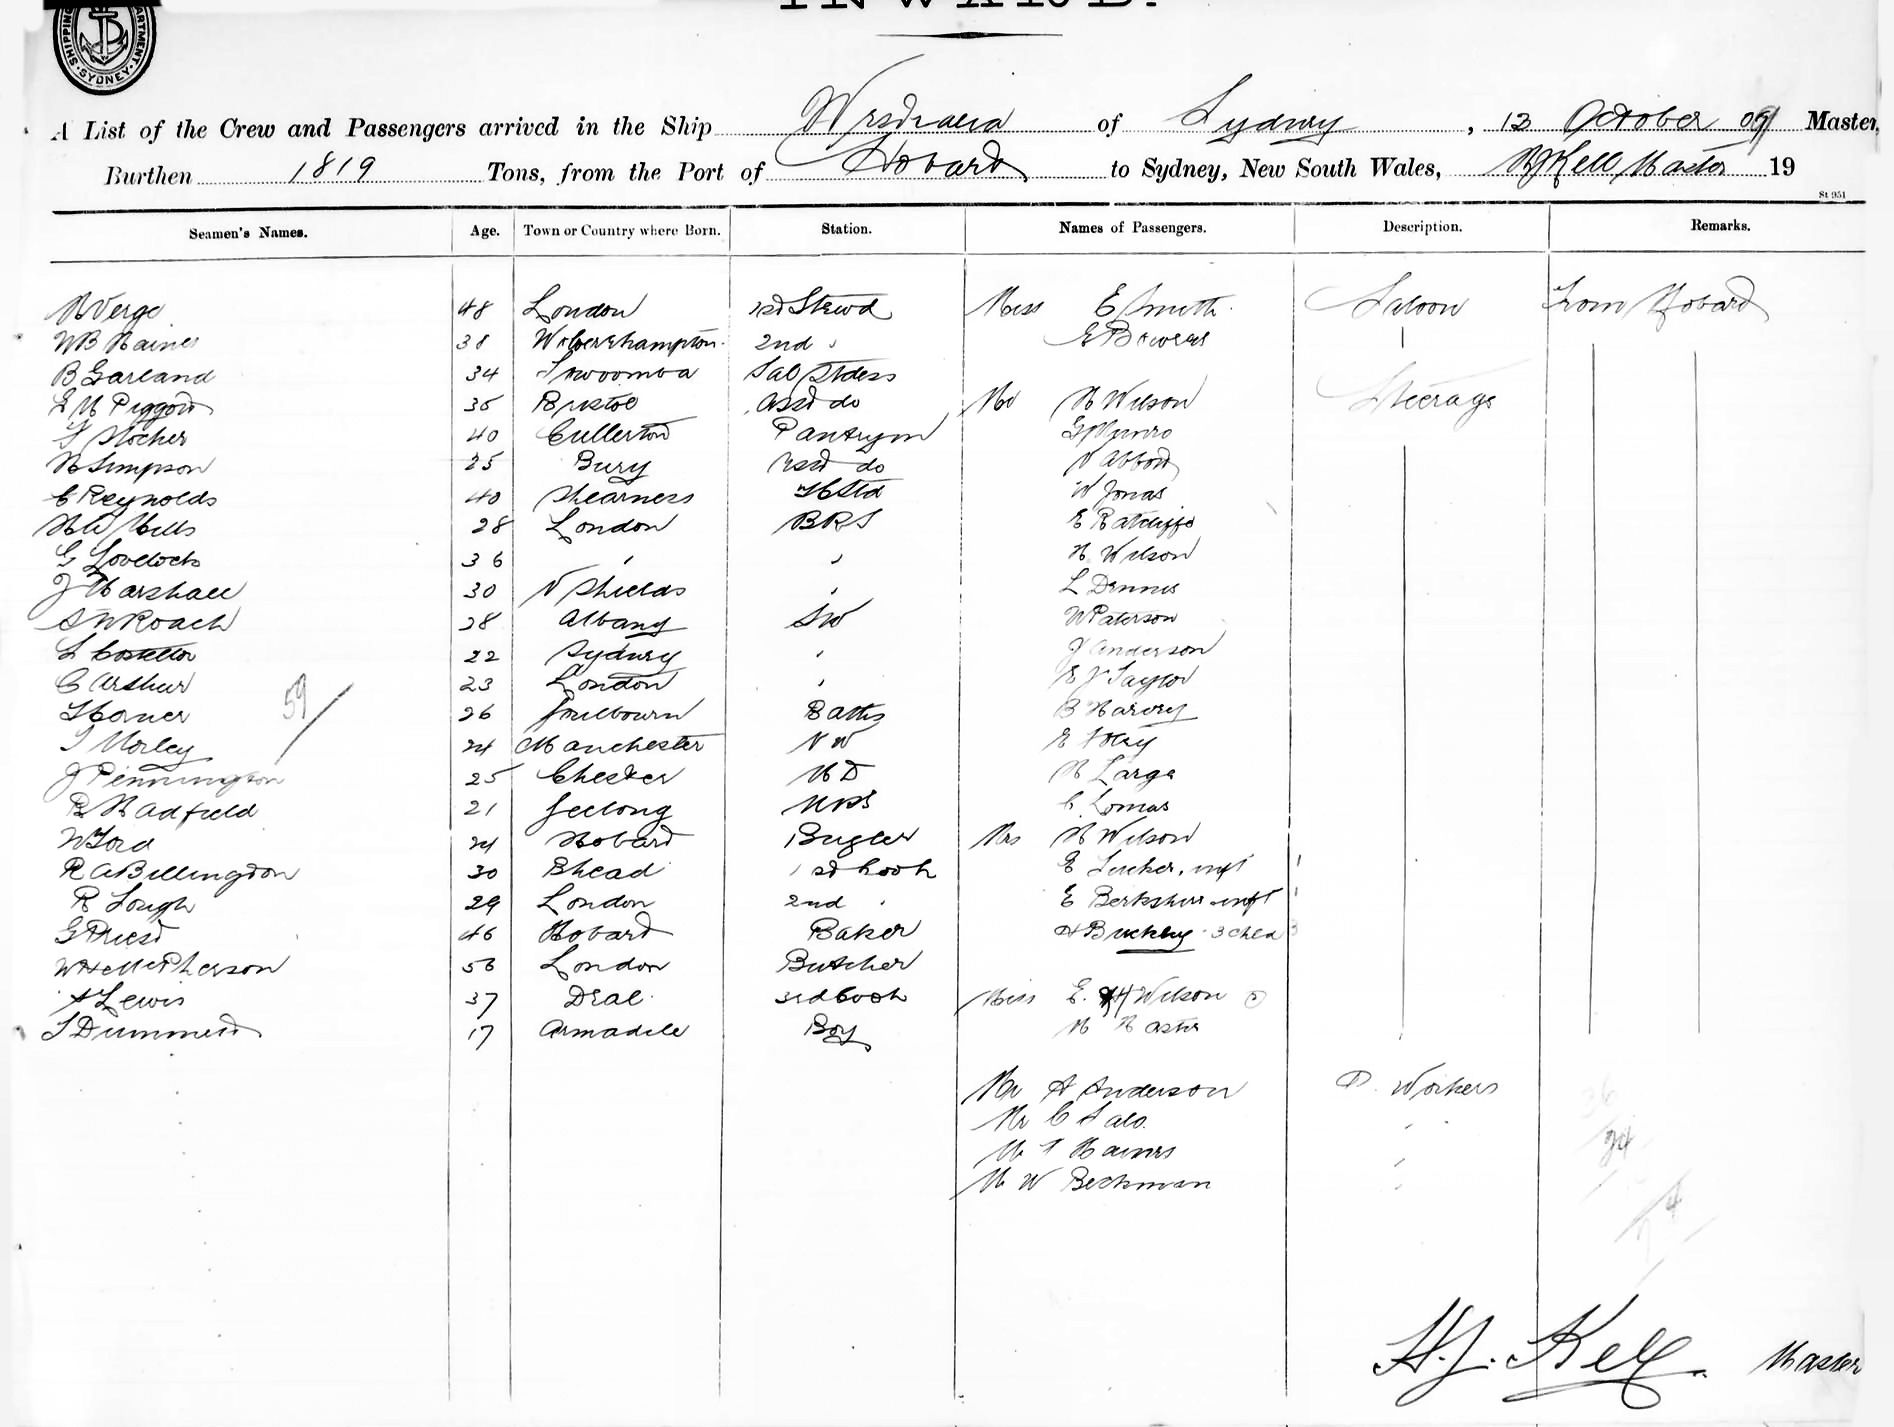 INWARD.
SHIPPING DEPARTMENT SYDNEY
A List of the Crew and Passengers arrived in the Ship Westralia of Sydney, 12 October 09 Master,
Burthen 1819 Tons, from the Port of Hobart to Sydney, New South Wales, Kell Master 19
St 951
Seamen's Names. Age. Town or Country where Born. Station. Names of Passengers. Description. Remarks.
Verge 48 London 1st Stewd Miss E Smith Saloon From Hobart
WB Haines 38 Wolverhampton 2nd " E Bowers
B Garland 34 Sal Stdess
Piggott 35 Bristol Asst do Mr H Wilson Steerage
Stocker 40 Cullerton Pantrym G Munro
H Simpson 25 Bury Asst do Abbott
C Reynolds 40 Shearness W Jonas
Mills 28 London BRS E Ratcliffe
G Lovelock 36 " " H Wilson
J Marshall 30 N Shields " L Dennis
Roach 28 Albany SW W Paterson
L Costello 22 Sydney " J Anderson
C Arthur 23 London " Taylor
59
Horner 26 Goulbourn Baths B Harvey
Morley 24 Manchester NW E Foley
J Pennington 25 Chester MD H Large
Hadfield 21 Geelong C Lomas
W Ford 24 Hobart Bugler Mrs H Wilson
R A Billingdon 30 Bhead 1st Cook E Tucker, inft 1
R Gough 29 London 2nd " E Berkshire inft 1
G Priest 46 Hobart Baker Buckley 3 chld 3
McPherson 56 London Butcher
A Lewis 37 Deal 3rd Cook Miss E. Wilson
17 Armadale Boy
Mr A Anderson Workers
Mr C "
Haines "
W Beckman "
24
H.J. Kell Master